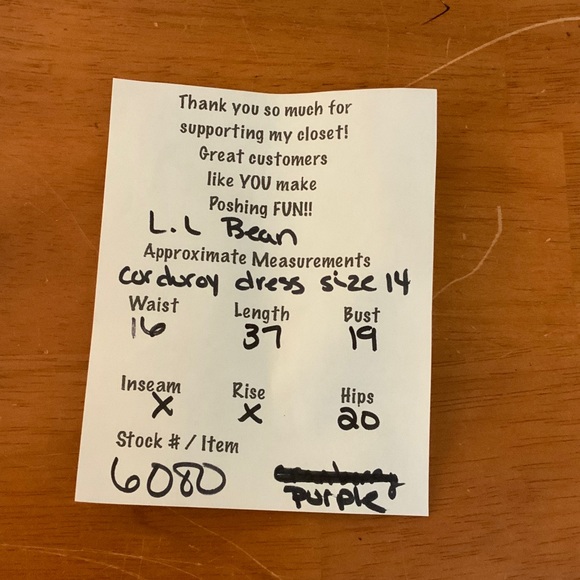 Thank you so much for
supporting my closet!
Great customers
like YOU make
Poshing FUN!!
L.L Bean
Approximate Measurements
corduroy dress size 14
Waist Length Bust
16 37 19
Inseam Rise Hips
X X 20
Stock # / Item
6080
purple